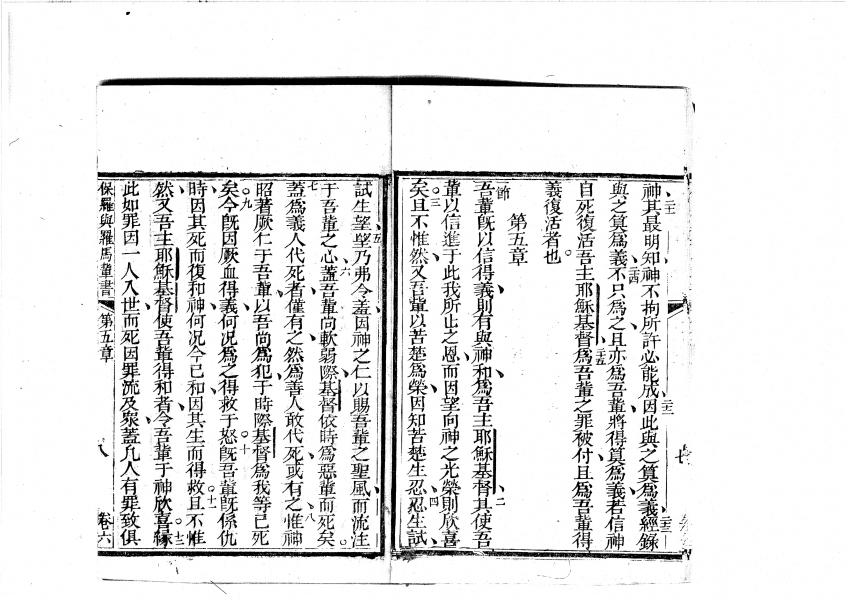 神其最明知神不拘所許必能成因此與之算為義經錄
與之算為義不只為之且亦為吾輩將得算為義若信神
自死復活吾主耶穌基督為吾輩之罪被付且為吾輩得
義復活者也
第五章
節
吾輩既以信得義則有與神和為吾主耶穌基督其使吾
輩以信進于此我所止之恩而因望向神之光榮則欣喜
矣且不惟然又吾輩以苦楚為榮因知苦楚生忍忍生試
試生望望乃弗令羞因神之仁以賜吾輩之聖風而流注
于吾輩之心蓋吾輩尚軟弱際基督依時為惡輩而死矣
蓋為義人代死者僅有之然為善人敢代死或有之惟神
昭著厥仁于吾輩以吾尚為犯于時際基督為我等已死
矣今既因厥血得義何況為之得救于怒既吾輩既係仇
時因其死而復和神何況今已和因其生而得救且不惟
然又吾主耶穌基督使吾輩得和者今吾輩于神欣喜緣
此如罪因一人入世而死因罪流及眾蓋凡人有罪致俱
保羅與羅馬輩書 第五章 八 卷六